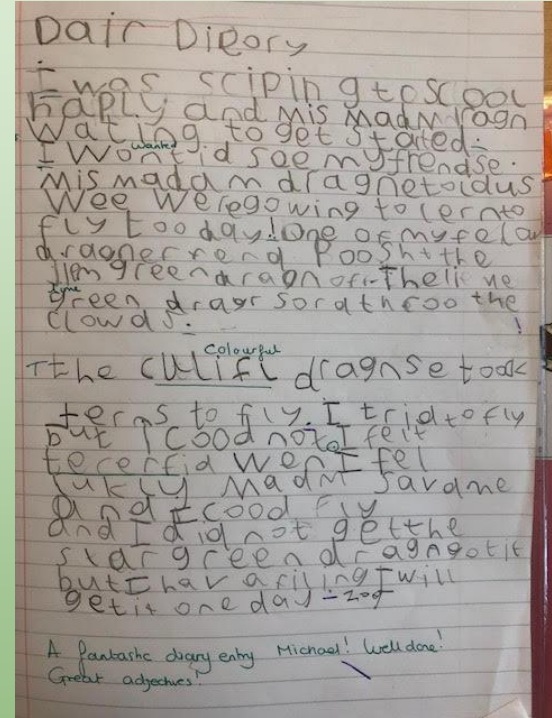 Dair Dieory
I was scipin g to scool
haply and mis madm ragn
wating to get stated.
Wanted
I Wontid see my frendse.
mis madam dragnetoldus
Wee Weregowing to lernto
fly too day! One of my felow
dragner rend Poosht the
lim green dragn off. The
Lyme
green dragr sorathroo the
clowds.
Colourful
The culifl dragnse took
terns to fly. I trid to fly
but I cood not. I felt
tecerfid wen I fel
lukly Madm savdme
and I cood fly
and I did not get the
star green dragn got it
but I hav a filing I will
get it one day - zog
A fantastic diary entry Michael! Well done!
Great adjectives!